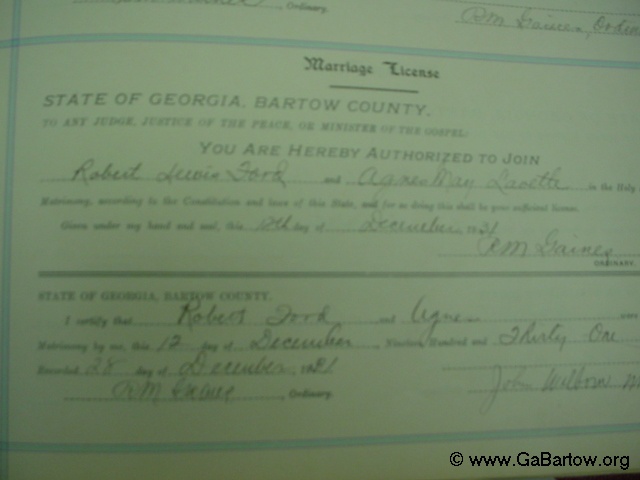 , Ordinary.
RM Gaines, Ordin
Marriage License
STATE OF GEORGIA, BARTOW COUNTY.
TO ANY JUDGE, JUSTICE OF THE PEACE, OR MINISTER OF THE GOSPEL:
YOU ARE HEREBY AUTHORIZED TO JOIN
Robert Lewis Ford and Agnes May Lavette in the Holy
Matrimony, according to the Constitution and laws of this State, and for so doing this shall be your sufficient license.
Given under my hand and seal, this day of December, 1931
RM Gaines
ORDINARY.
STATE OF GEORGIA, BARTOW COUNTY.
I certify that Robert Ford and Agnes were
Matrimony by me, this 12 day of December, Nineteen Hundred and Thirty One
Recorded 28 day of December, 1931
John Wilborn
RM Gaines, Ordinary.
© www.GaBartow.org